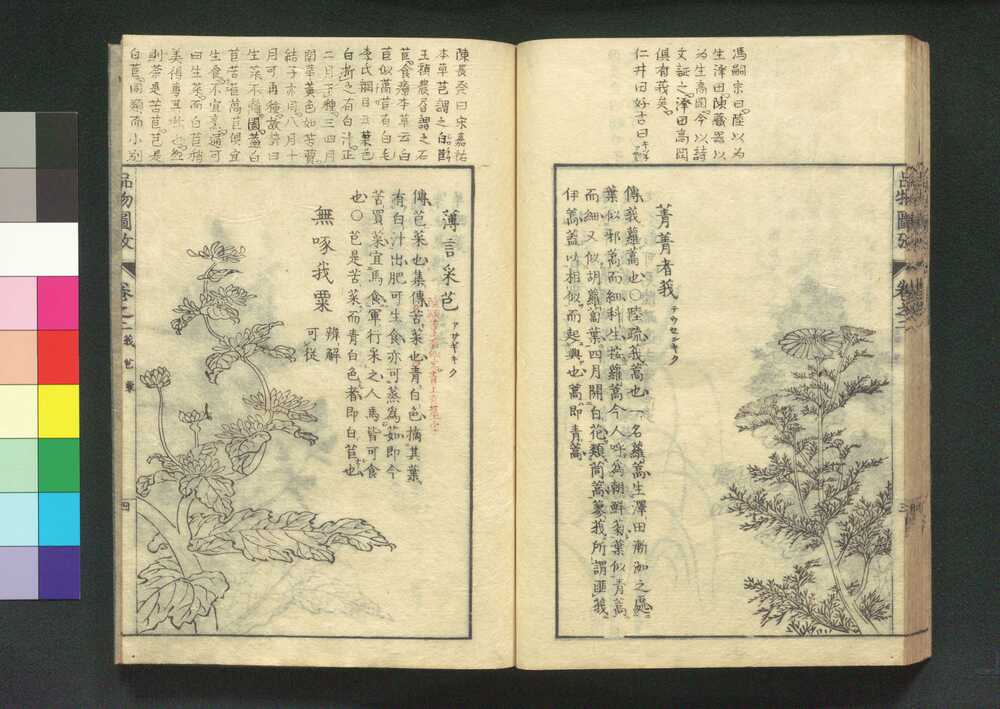 馮嗣宗曰陸以為
生澤田陳藏器以
為生高岡今以詩
文証之澤田高岡
俱有莪矣
仁井田好古曰キツネ
菁菁者莪
テウセンギク
傳莪蘿蒿也○陸疏莪蒿也一名蘿蒿生澤田漸洳之處
葉似邪蒿而細科生按蘿蒿今人呼為朝鮮菊葉似青蒿
而細又似胡蘿蔔葉四月開白花類茼蒿蓼莪所謂匪莪
伊蒿蓋以相似而起興也蒿即青蒿
品物圖攷
卷之二
三
陳長発曰宋嘉祐
本草芑謂之白苣
王禎農書謂之石
苣食療本草云白
苣似萵苣有白毛
李氏綱目云葉色
白折之有白汁正
二月下種三四月
開華黃色如苦蕒
結子亦同八月十
月可再種故諺曰
生菜不離園蓋白
苣苦苣萵苣俱宜
生食不宜烹通可
曰生菜而白苣稍
美得專其茲也然
則芑是苦苣芑是
白苣同類而小別
薄言采芑
アサギギク
傳芑菜也集傳苦菜也青白色摘其葉
有白汁出肥可生食亦可蒸為茹即今
苦蕒菜宜馬食軍行采之人馬皆可食
也○芑是苦菜而青白色者即白苣也
無啄我粟
辨解
可從
品物圖攷
卷之二
莪芑粟
四